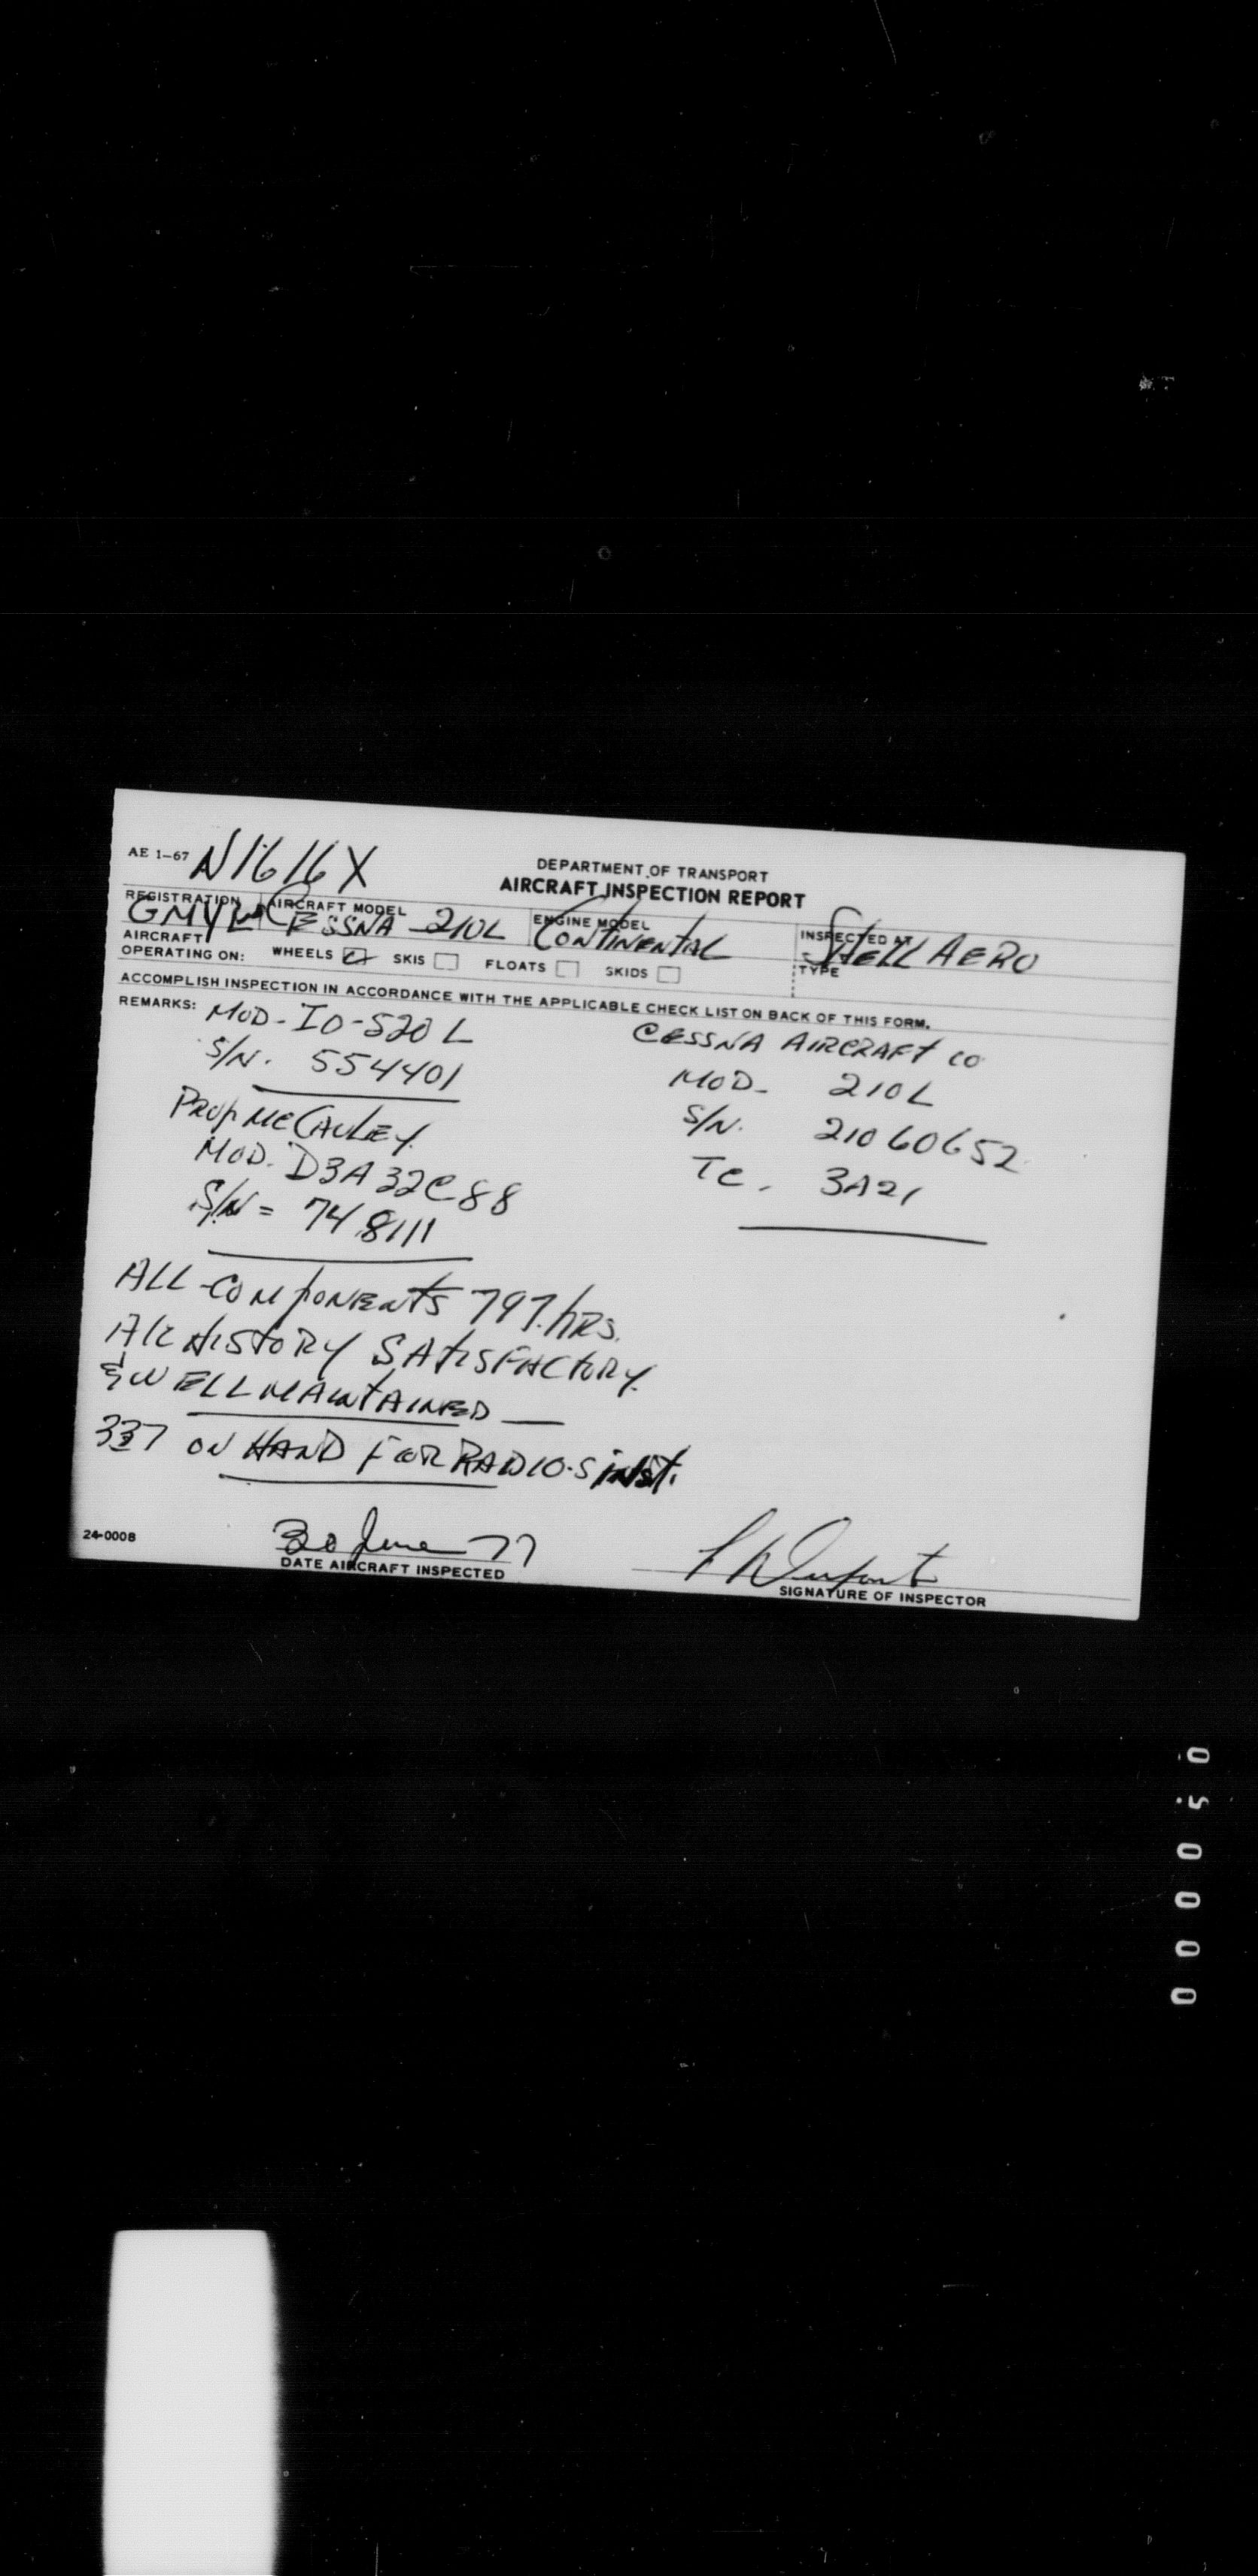 AE 1-67 N1616X
DEPARTMENT OF TRANSPORT
AIRCRAFT INSPECTION REPORT
REGISTRATION AIRCRAFT MODEL ENGINE MODEL INSPECTED AT
CESSNA 210L CONTINENTAL AERO
AIRCRAFT
OPERATING ON: WHEELS SKIS FLOATS SKIDS TYPE
ACCOMPLISH INSPECTION IN ACCORDANCE WITH THE APPLICABLE CHECK LIST ON BACK OF THIS FORM.
REMARKS: MOD- IO-520 L
S/N. 554401
PROP MCCAULEY.
MOD. D3A32C88
S/N = 748111
CESSNA AIRCRAFT CO
MOD- 210L
S/N. 21060652
TC. 3A21
ALL COMPONENTS 797.HRS.
A/C HISTORY SATISFACTORY.
& WELL MAINTAINED —
337 ON HAND FOR RADIO.S INST.
24-0008
30 June 77
DATE AIRCRAFT INSPECTED
SIGNATURE OF INSPECTOR
000050